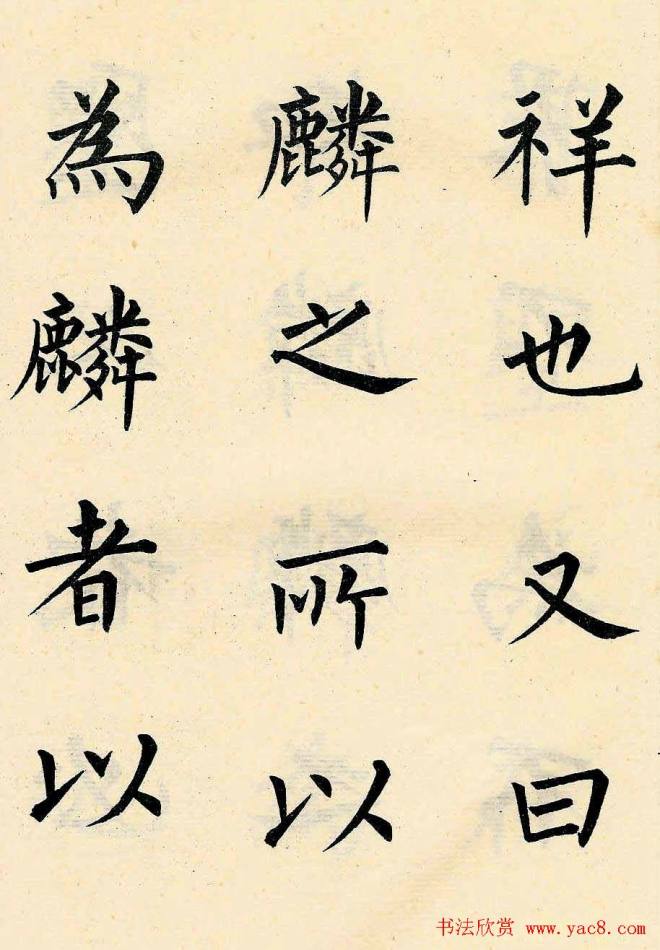 祥也又曰
麟之所以
為麟者以
书法欣赏 www.yac8.com